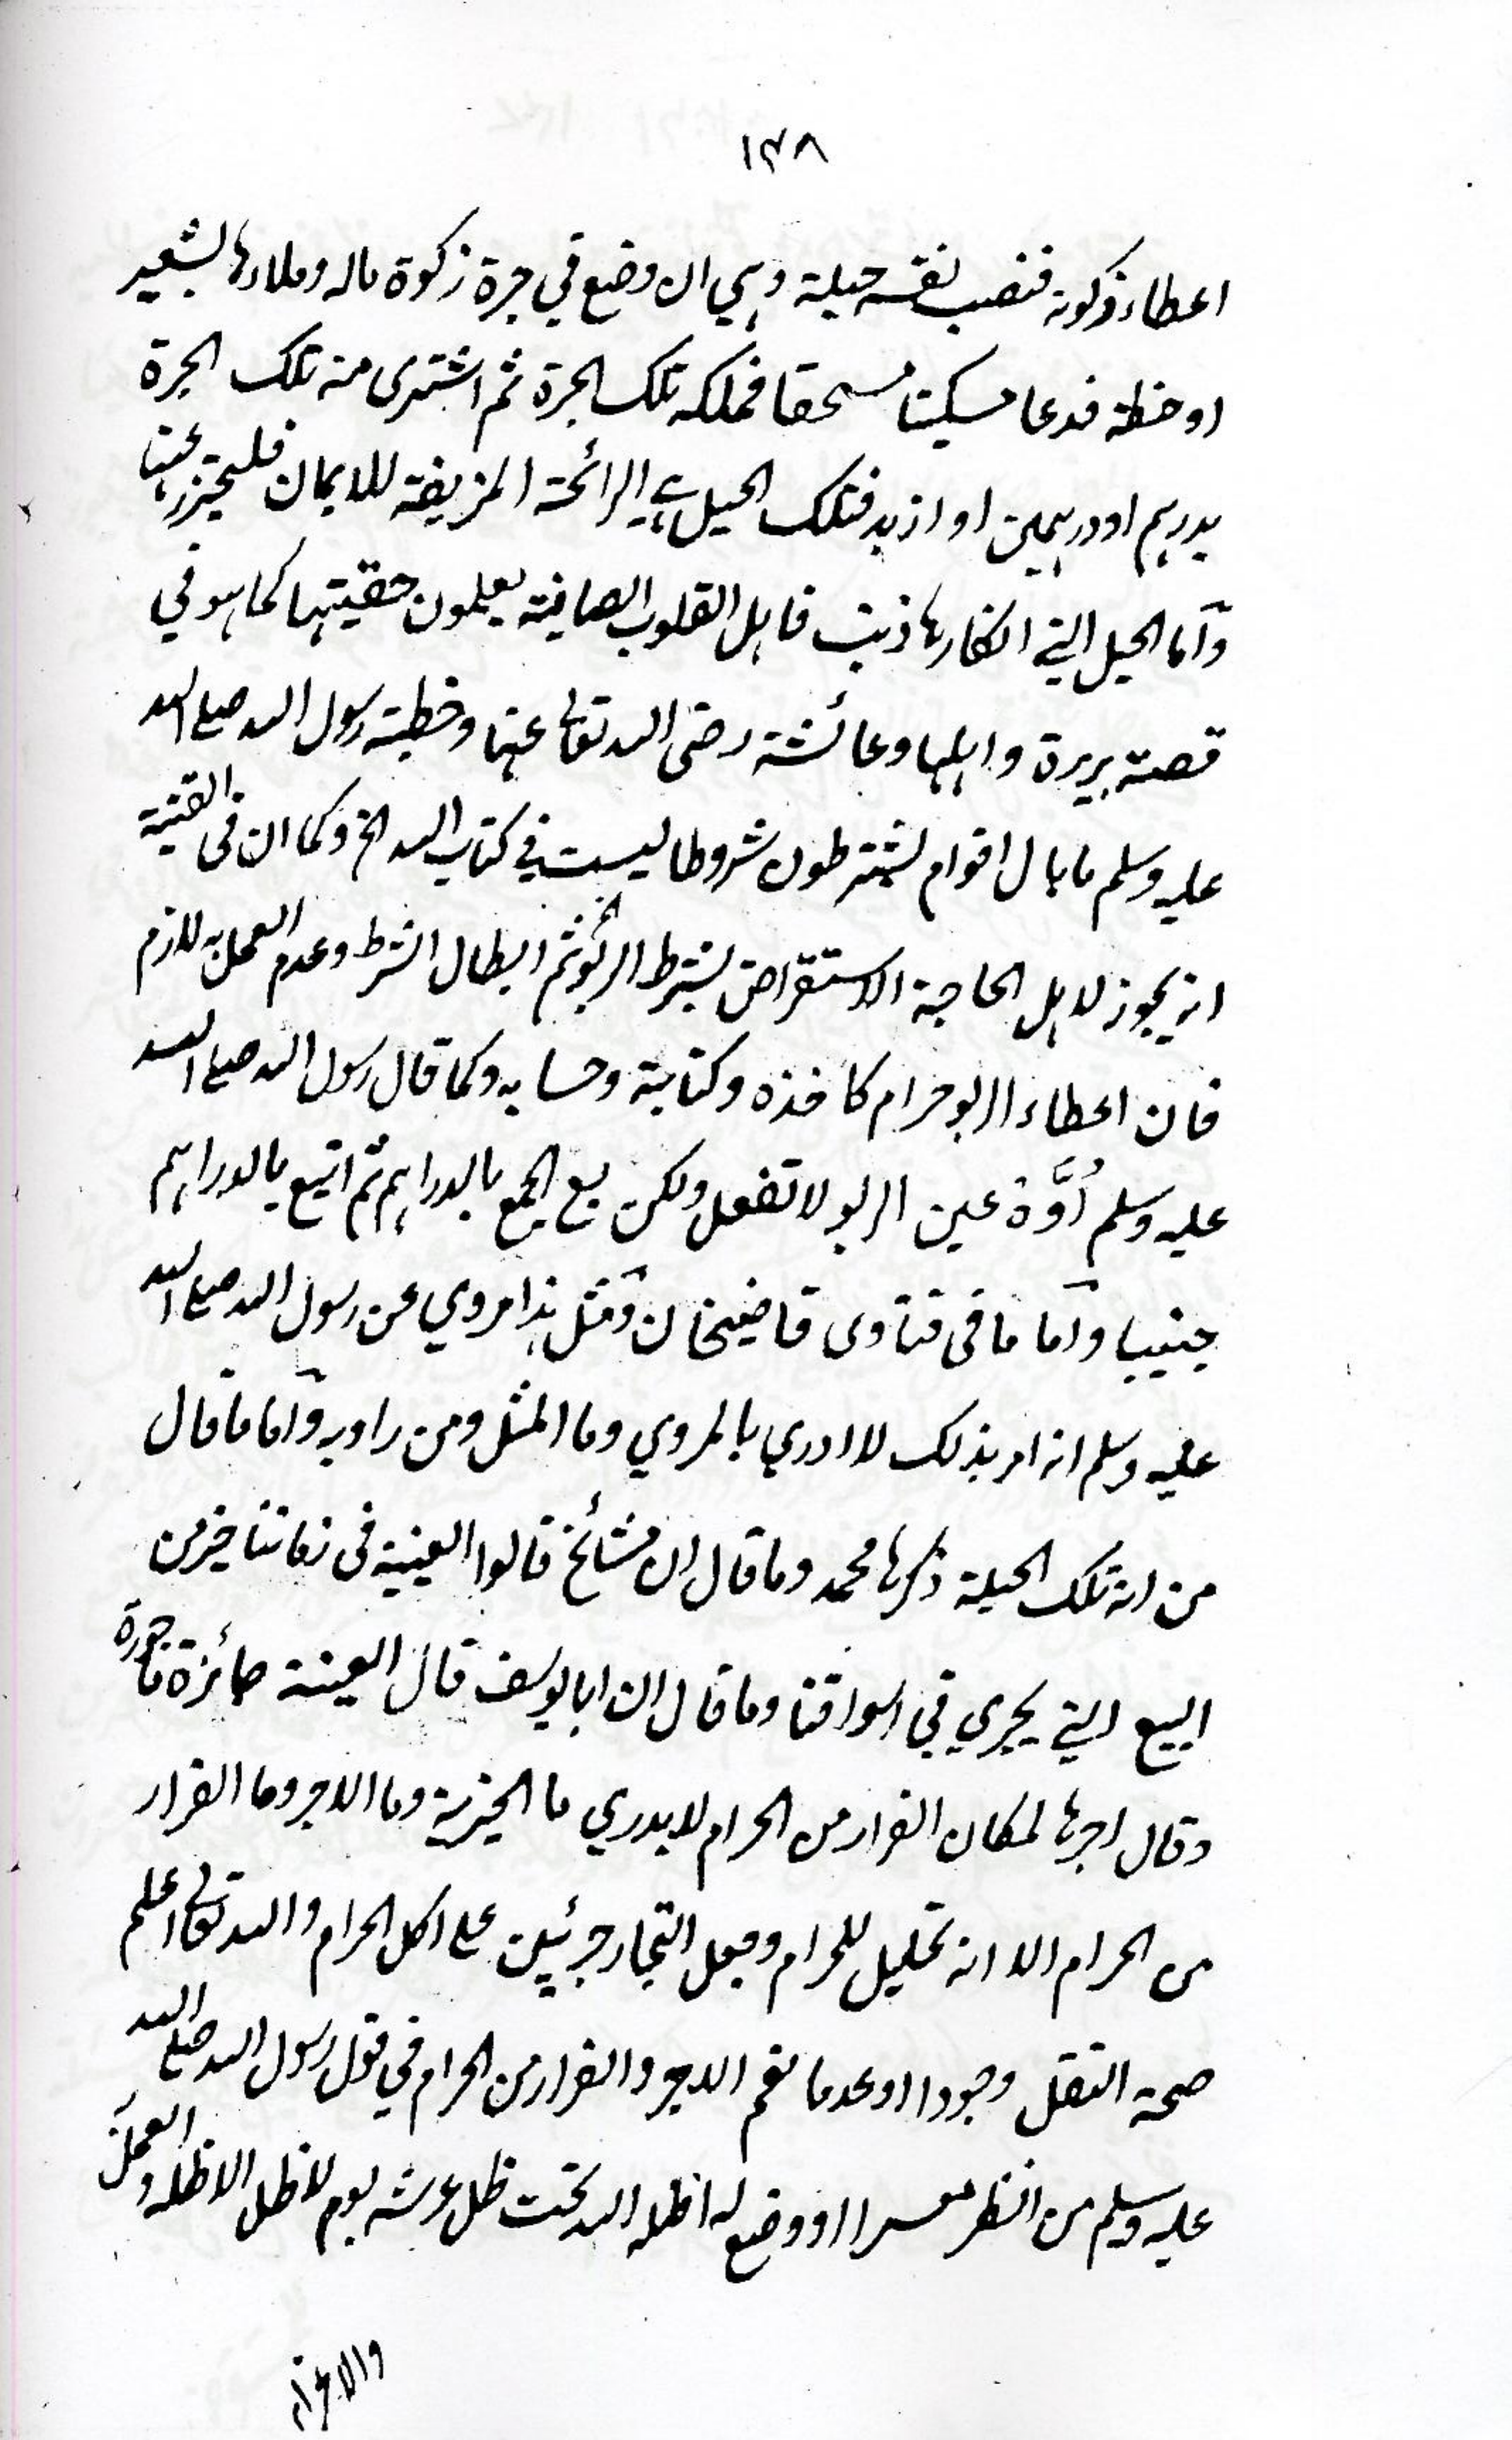 ١٣٨
اعطاء زكوته فنصب لنفسه حيلة وهي ان وضع في جرة زكوة ماله وملاءها بشعير
او حنطة فدعا مسكينا مستحقا فملكه تلك الجرة ثم اشترى منه تلك الجرة
بدرهم او درهمين او ازيد فتلك الحيل هي الرائحة المزيغة للايمان فليحترز عنها
وأما الحيل التي انكارها ذنب فاهل القلوب الصافية يعلمون حقيتها كما هو في
قصة بريرة واهلها وعائشة رضى الله تعالى عنها وخطبة رسول الله صلى الله
عليه وسلم ما بال اقوام يشترطون شروطا ليست في كتاب الله الخ وكما ان في القنية
انه يجوز لاهل الحاجة الاستقراض بشرط الربو ثم ابطال الشرط وعدم العمل به لازم
فان اعطاء الربو حرام كاخذه وكتابة وحسابه وكما قال رسول الله صلى الله
عليه وسلم أَوَّهْ عين الربو لا تفعل ولكن بع الجمع بالدراهم ثم اتبع بالدراهم
جنيبا وأما ما في فتاوى قاضيخان ومثل هذا مروي عن رسول الله صلى الله
عليه وسلم انه امر بذلك لا ادري بالمروي وما المثل ومن راويه وأما ما قال
من انه تلك الحيلة ذكرها محمد وما قال ان مشائخ قالوا العينة في زماننا خير من
البيع التي يجري في اسواقنا وما قال ان ابا يوسف قال العينة جائزة ماجورة
وقال اجرها لمكان الفرار من الحرام لا يدري ما الخيرية وما الاجر وما الفرار
من الحرام الا انه تحليل للحرام وجعل التجار جرئيين على اكل الحرام والله تعالى اعلم
صحة النقل وجودا او عدما نعم الاجر والفرار من الحرام في قول رسول الله صلى الله
عليه وسلم من انظر معسرا او وضع له اظله الله تحت ظل عرشه يوم لا ظل الا ظله والعمل